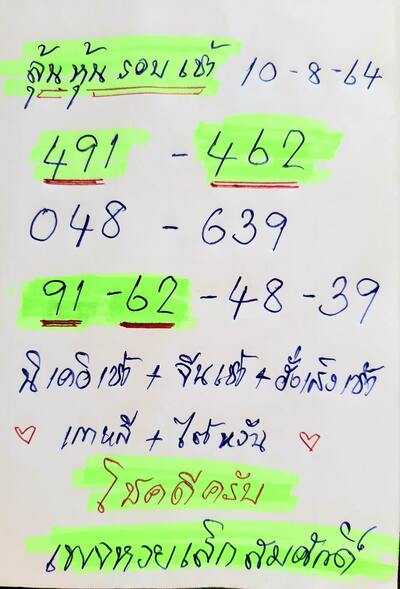 ลุ้นหุ้นรอบเช้า 10-8-64
491 - 462
048 - 639
91 - 62 - 48 - 39
นิเคอิเช้า + จีนเช้า + ฮั่งเส็งเช้า
เกาหลี + ไต้หวัน
โชคดีครับ
เพจหวยเล็กสมศักดิ์